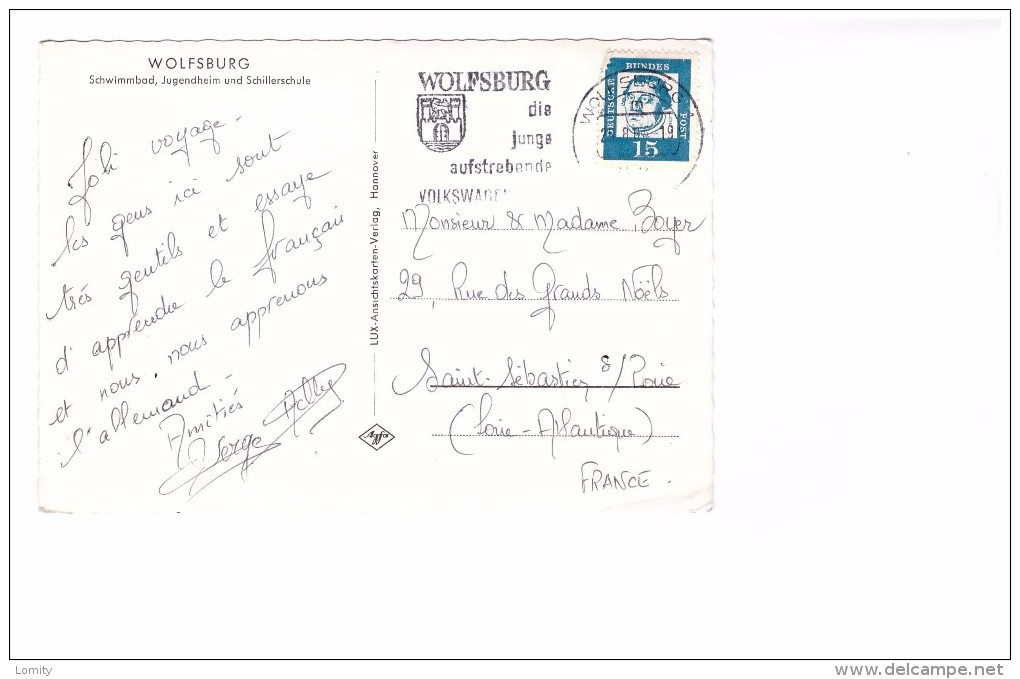 WOLFSBURG
Schwimmbad, Jugendheim und Schillerschule
Joli voyage -
les gens ici sont
très gentils et essaye
d'apprendre le français
et nous, nous apprenons
l'allemand -
Amitiés
Serge
LUX-Ansichtskarten-Verlag, Hannover
Agfa
WOLFSBURG
die
junge
aufstrebende
VOLKSWAGEN
WOLFSBURG 1
DEUTSCHE
BUNDES
POST
15
Monsieur & Madame Boyer
29, Rue des Grands Noëls
Saint-Sébastien s/Loire
(Loire-Atlantique)
FRANCE.
Lomity
www.delcampe.net